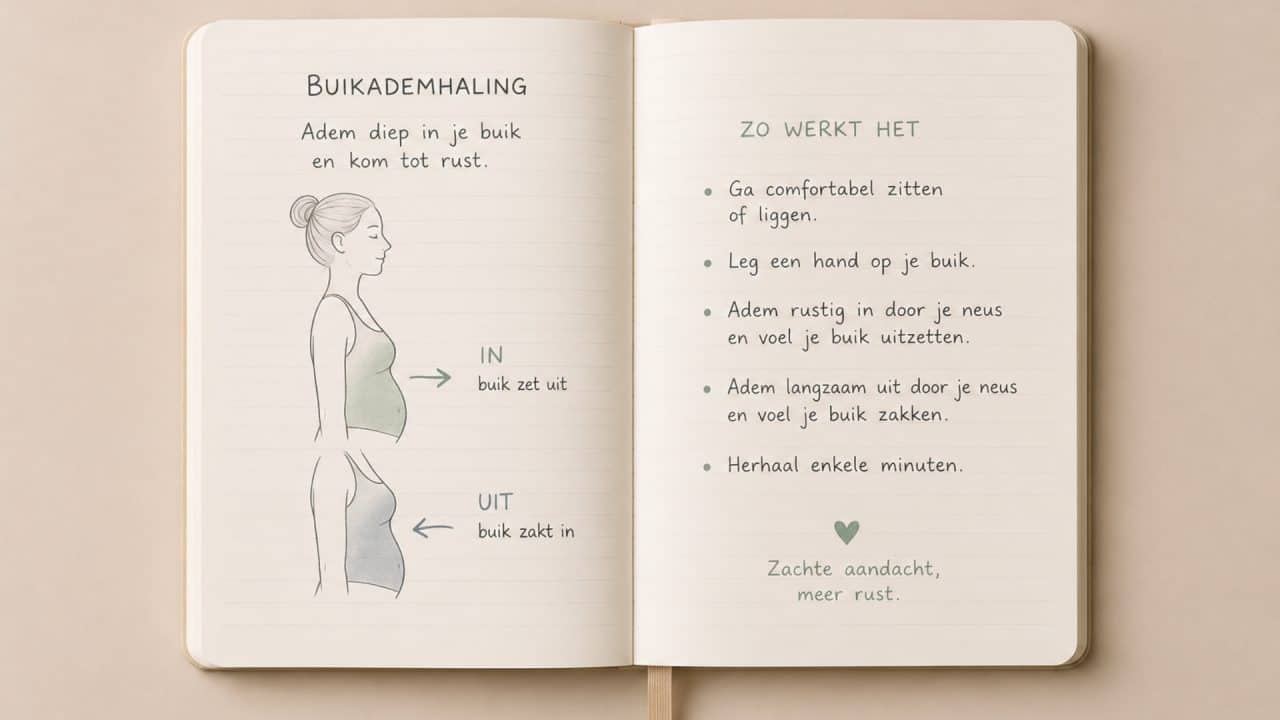 BUIKADEMHALING
Adem diep in je buik
en kom tot rust.
IN
buik zet uit
UIT
buik zakt in
ZO WERKT HET
• Ga comfortabel zitten
of liggen.
• Leg een hand op je buik.
• Adem rustig in door je neus
en voel je buik uitzetten.
• Adem langzaam uit door je neus
en voel je buik zakken.
• Herhaal enkele minuten.
Zachte aandacht,
meer rust.